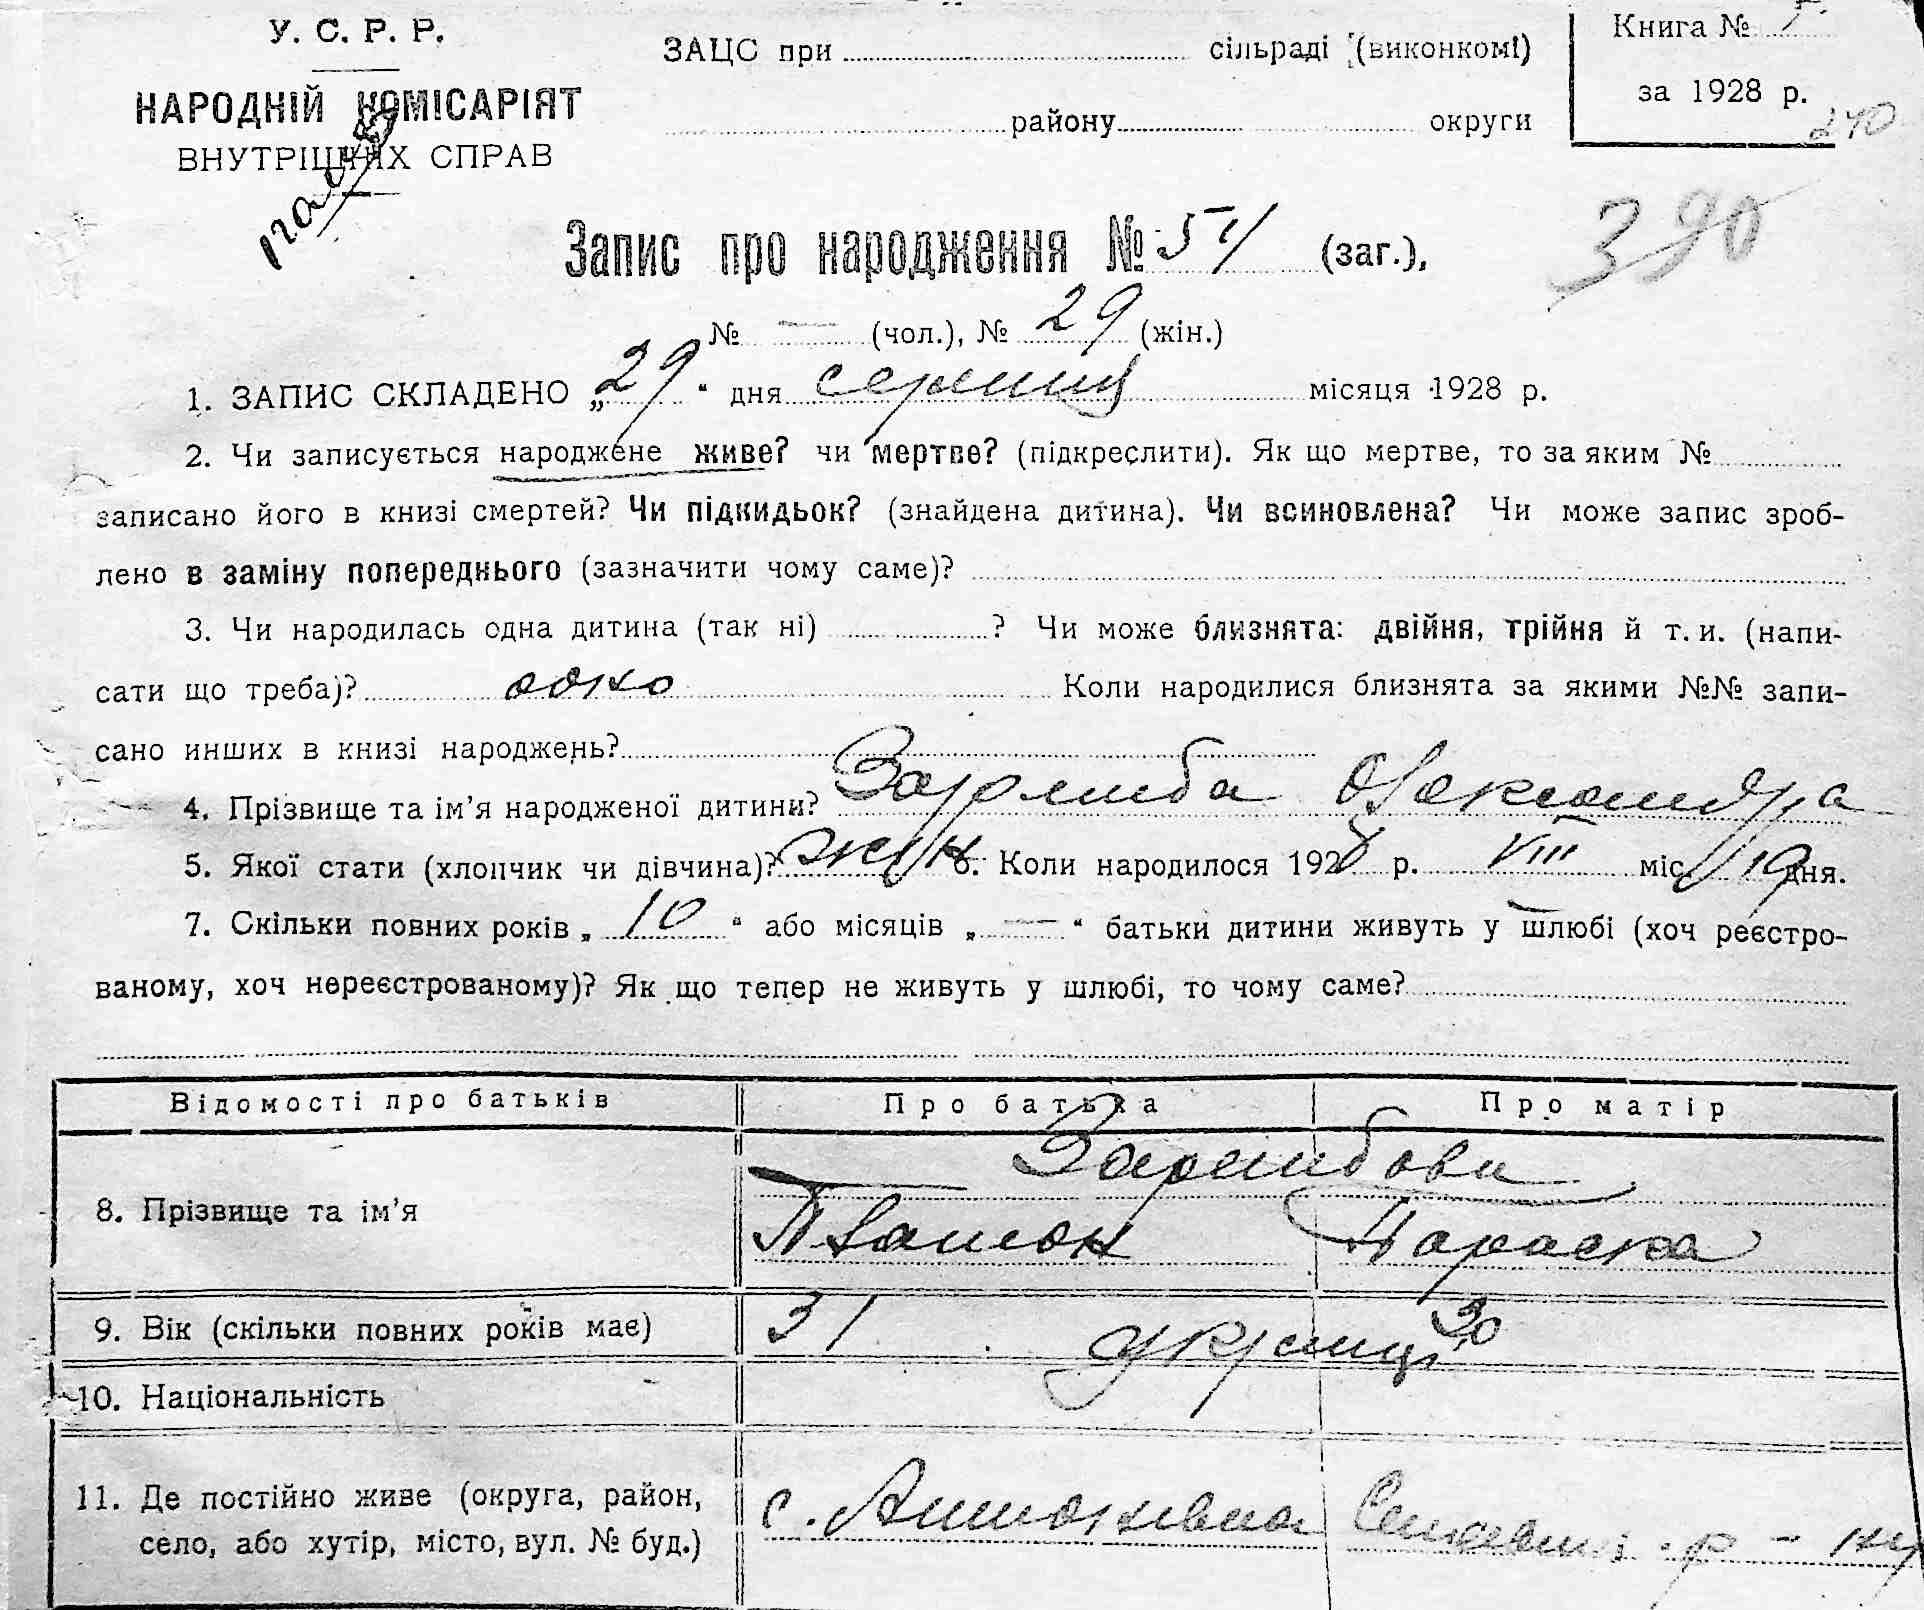 У. С. Р. Р.
НАРОДНІЙ КОМІСАРІЯТ
ВНУТРІШНІХ СПРАВ
ЗАЦС при сільраді (виконкомі)
району округи
Книга №
за 1928 р.
240
390
Запис про народження № 51 (заг.),
№ — (чол.), № 29 (жін.)
1. ЗАПИС СКЛАДЕНО „29“ дня серпня місяця 1928 р.
2. Чи записується народжене живе? чи мертве? (підкреслити). Як що мертве, то за яким №
записано його в книзі смертей? Чи підкидьок? (знайдена дитина). Чи всиновлена? Чи може запис зроб-
лено в заміну попереднього (зазначити чому саме)?
3. Чи народилась одна дитина (так ні) ? Чи може близнята: двійня, трійня й т. и. (напи-
сати що треба)? одно Коли народилися близнята за якими №№ запи-
сано инших в книзі народжень?
4. Прізвище та ім’я народженої дитини? Заремба Олександра
5. Якої стати (хлопчик чи дівчина)? жін 6. Коли народилося 1928 р. VIII міс. 19 дня.
7. Скільки повних років „10“ або місяців „—“ батьки дитини живуть у шлюбі (хоч реєстро-
ваному, хоч нереєстрованому)? Як що тепер не живуть у шлюбі, то чому саме?
Відомості про батьків Про батька Про матір
8. Прізвище та ім’я Зарембови
Платон Параска
9. Вік (скільки повних років має) 31 30
10. Національність українці
11. Де постійно живе (округа, район,
село, або хутір, місто, вул. № буд.) с. Антонівка р-ну